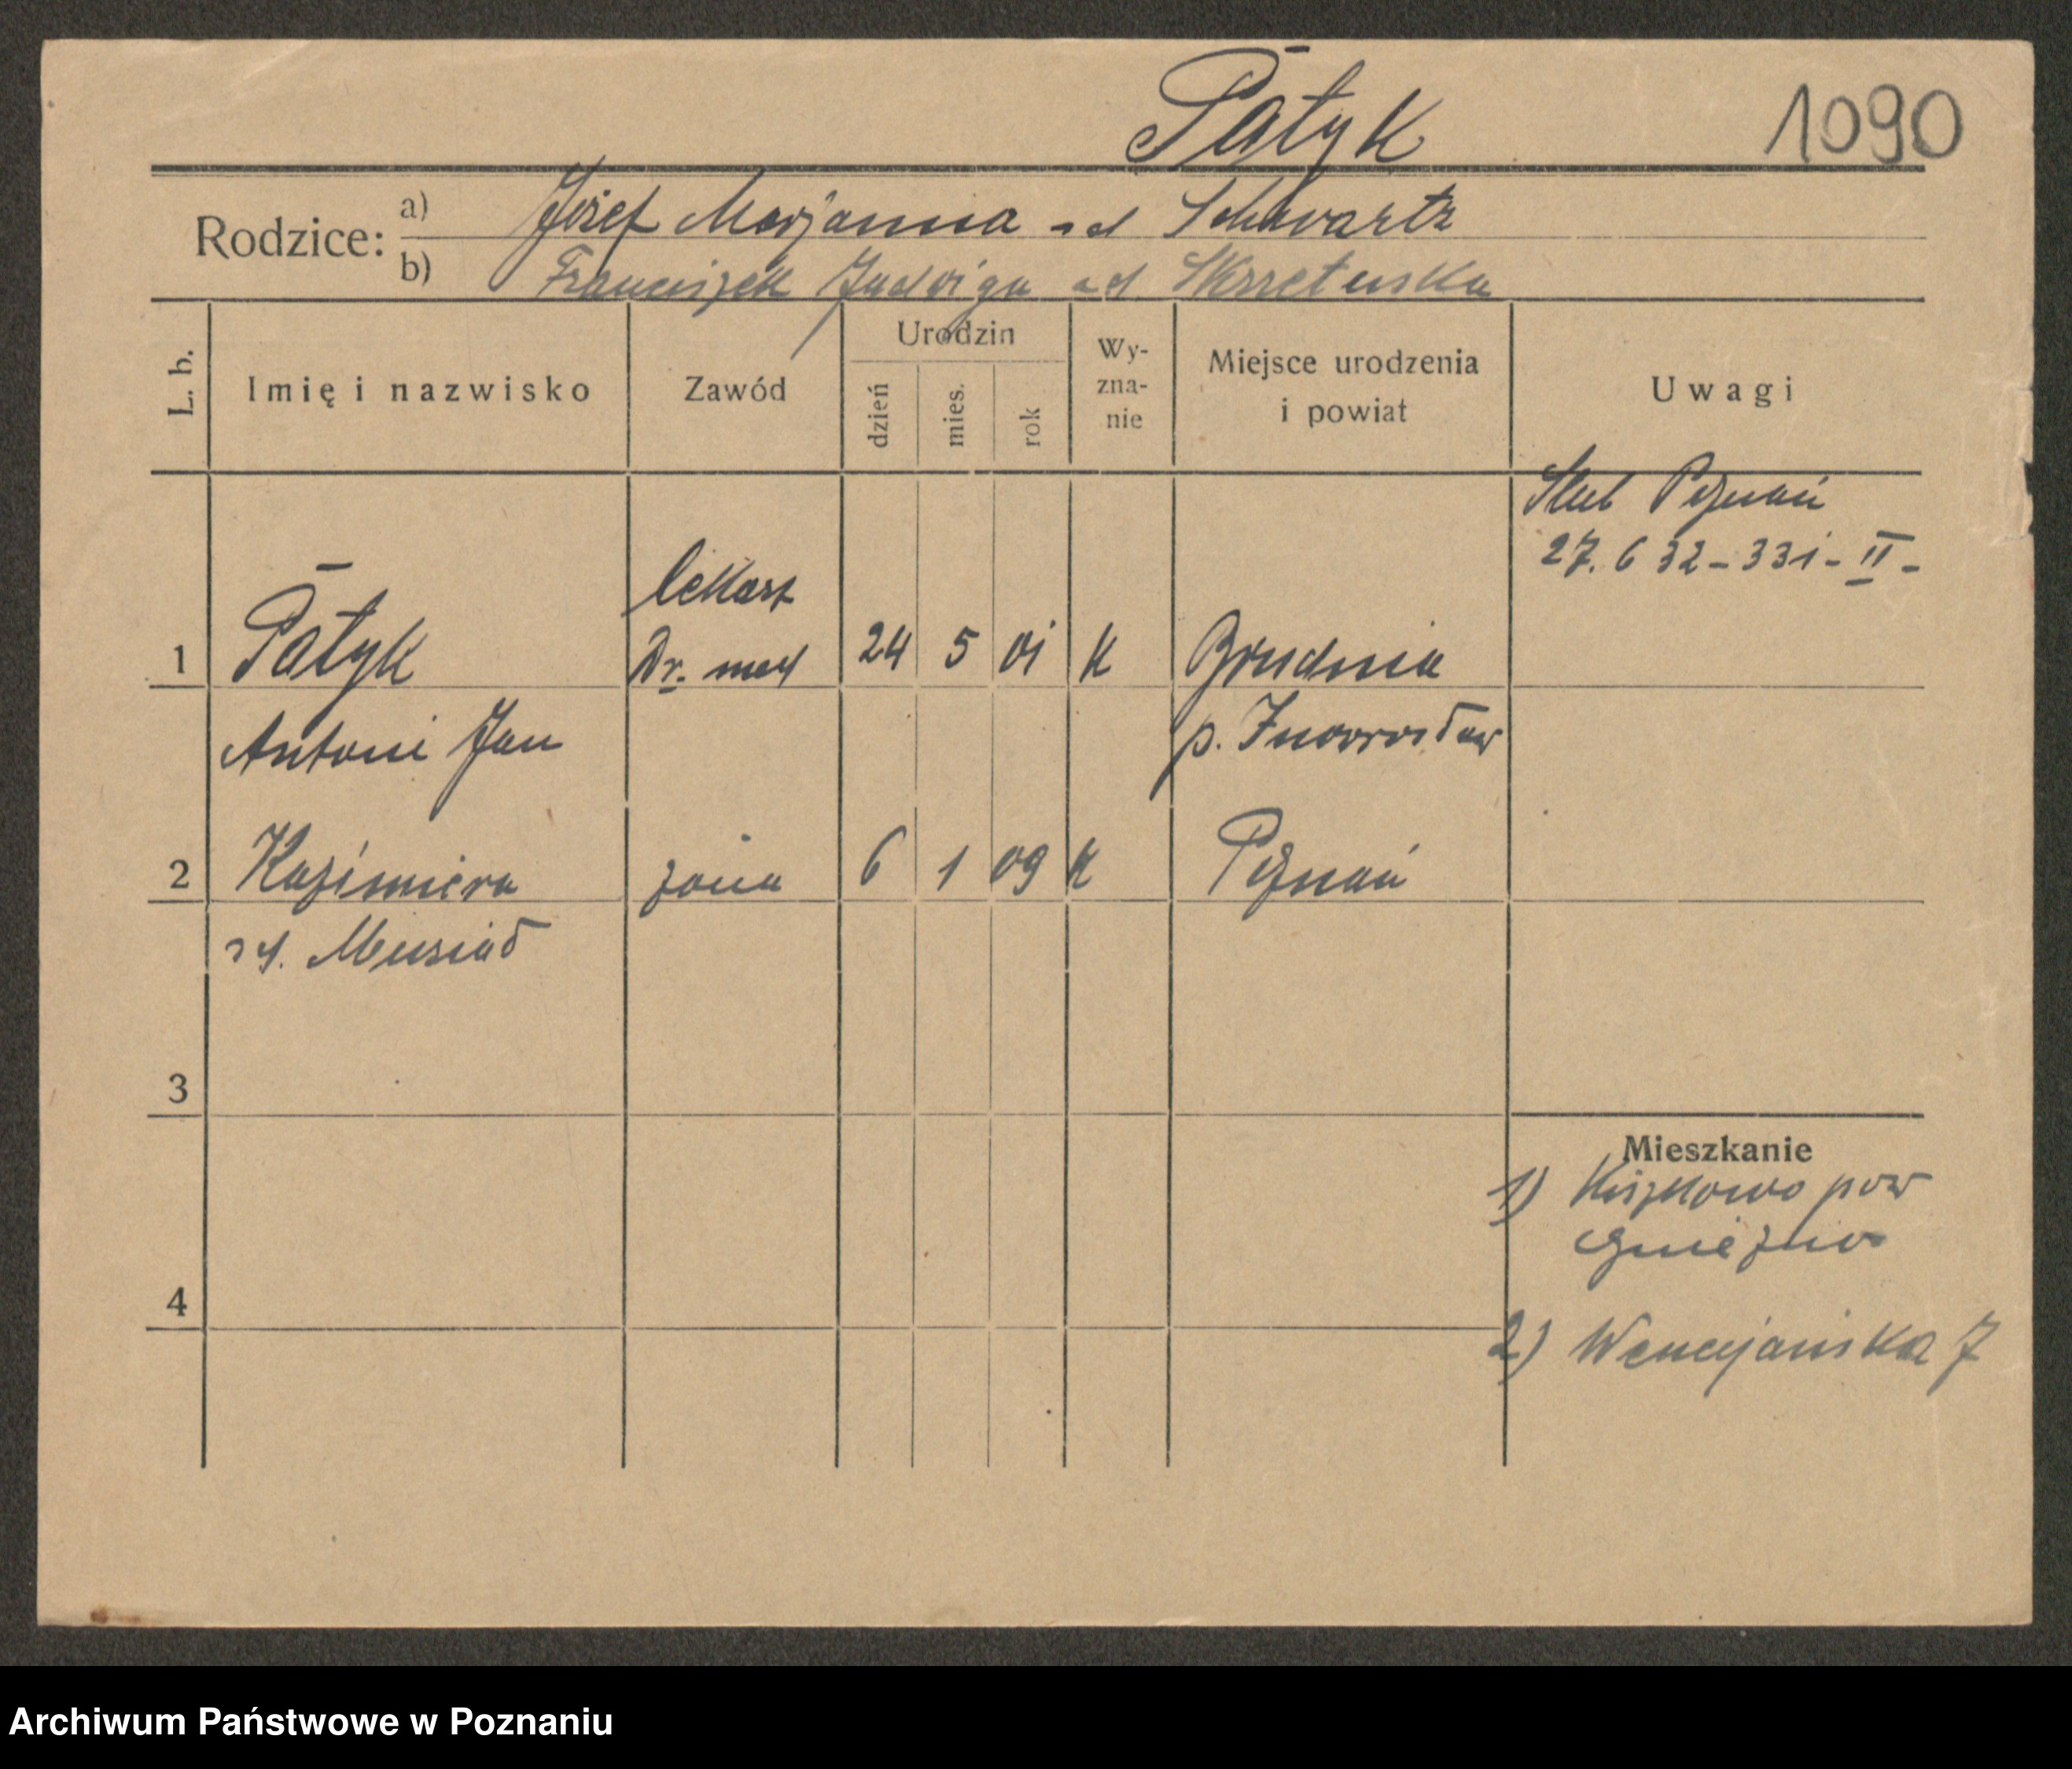 Patyk
1090
Rodzice:
a) Józef Marjanna zd Schwartz
b) Franciszek Jadwiga zd Skrzetuska
L. b.
Imię i nazwisko
Zawód
Urodzin
dzień
mies.
rok
Wy-
zna-
nie
Miejsce urodzenia
i powiat
Uwagi
Ślub Poznań
27. 6 32 - 331 - II -
lekarz
1 Patyk Dr. med 24 5 01 K Brudnia
Antoni Jan p. Inowrocław
2 Kazimiera żona 6 1 09 K Poznań
zd. Musiał
3
Mieszkanie
1) Kiszkowo pow
Gniezno
4
2) Wenecjańska 7
Archiwum Państwowe w Poznaniu